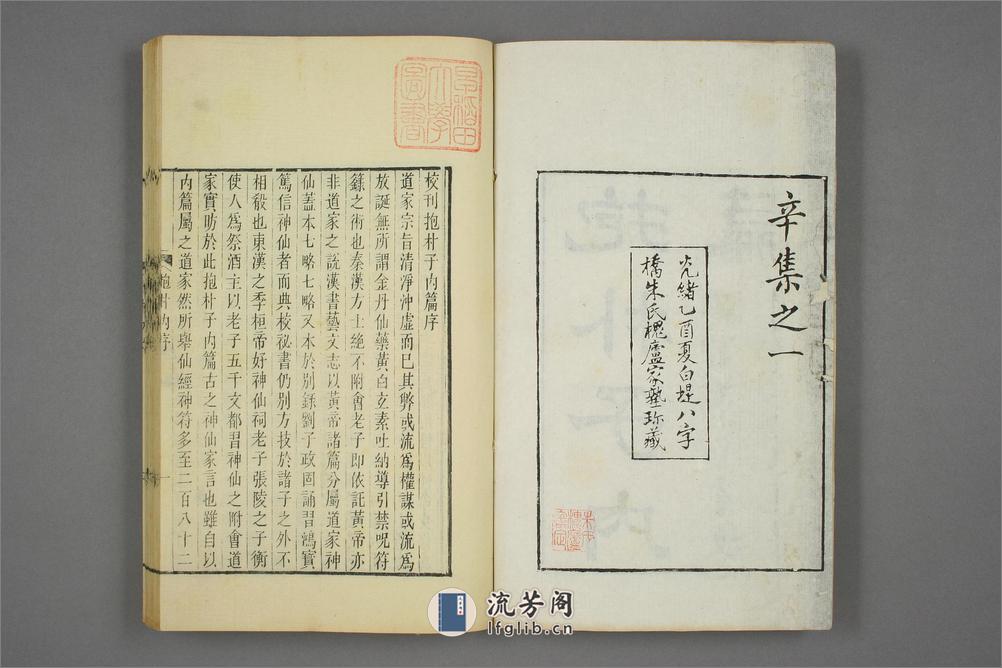 辛集之一
光緒乙酉夏白堤八字
橋朱氏槐廬家塾珍藏
早稻田
大學
圖書
校刊抱朴子內篇序
道家宗旨清淨沖虛而已其弊或流爲權謀或流爲
放誕無所謂金丹仙藥黃白玄素吐納導引禁呪符
籙之術也秦漢方士絶不附會老子即依託黃帝亦
非道家之說漢書藝文志以黃帝諸篇分屬道家神
仙蓋本七略七略又本於別錄劉子政固誦習鴻寶
篤信神仙者而典校祕書仍別方技於諸子之外不
相殽也東漢之季桓帝好神仙祠老子張陵之子衡
使人爲祭酒主以老子五千文都習神仙之附會道
家實昉於此抱朴子內篇古之神仙家言也雖自以
內篇屬之道家然所舉仙經神符多至二百八十二
抱朴內序
一
流芳阁
lfglib.cn